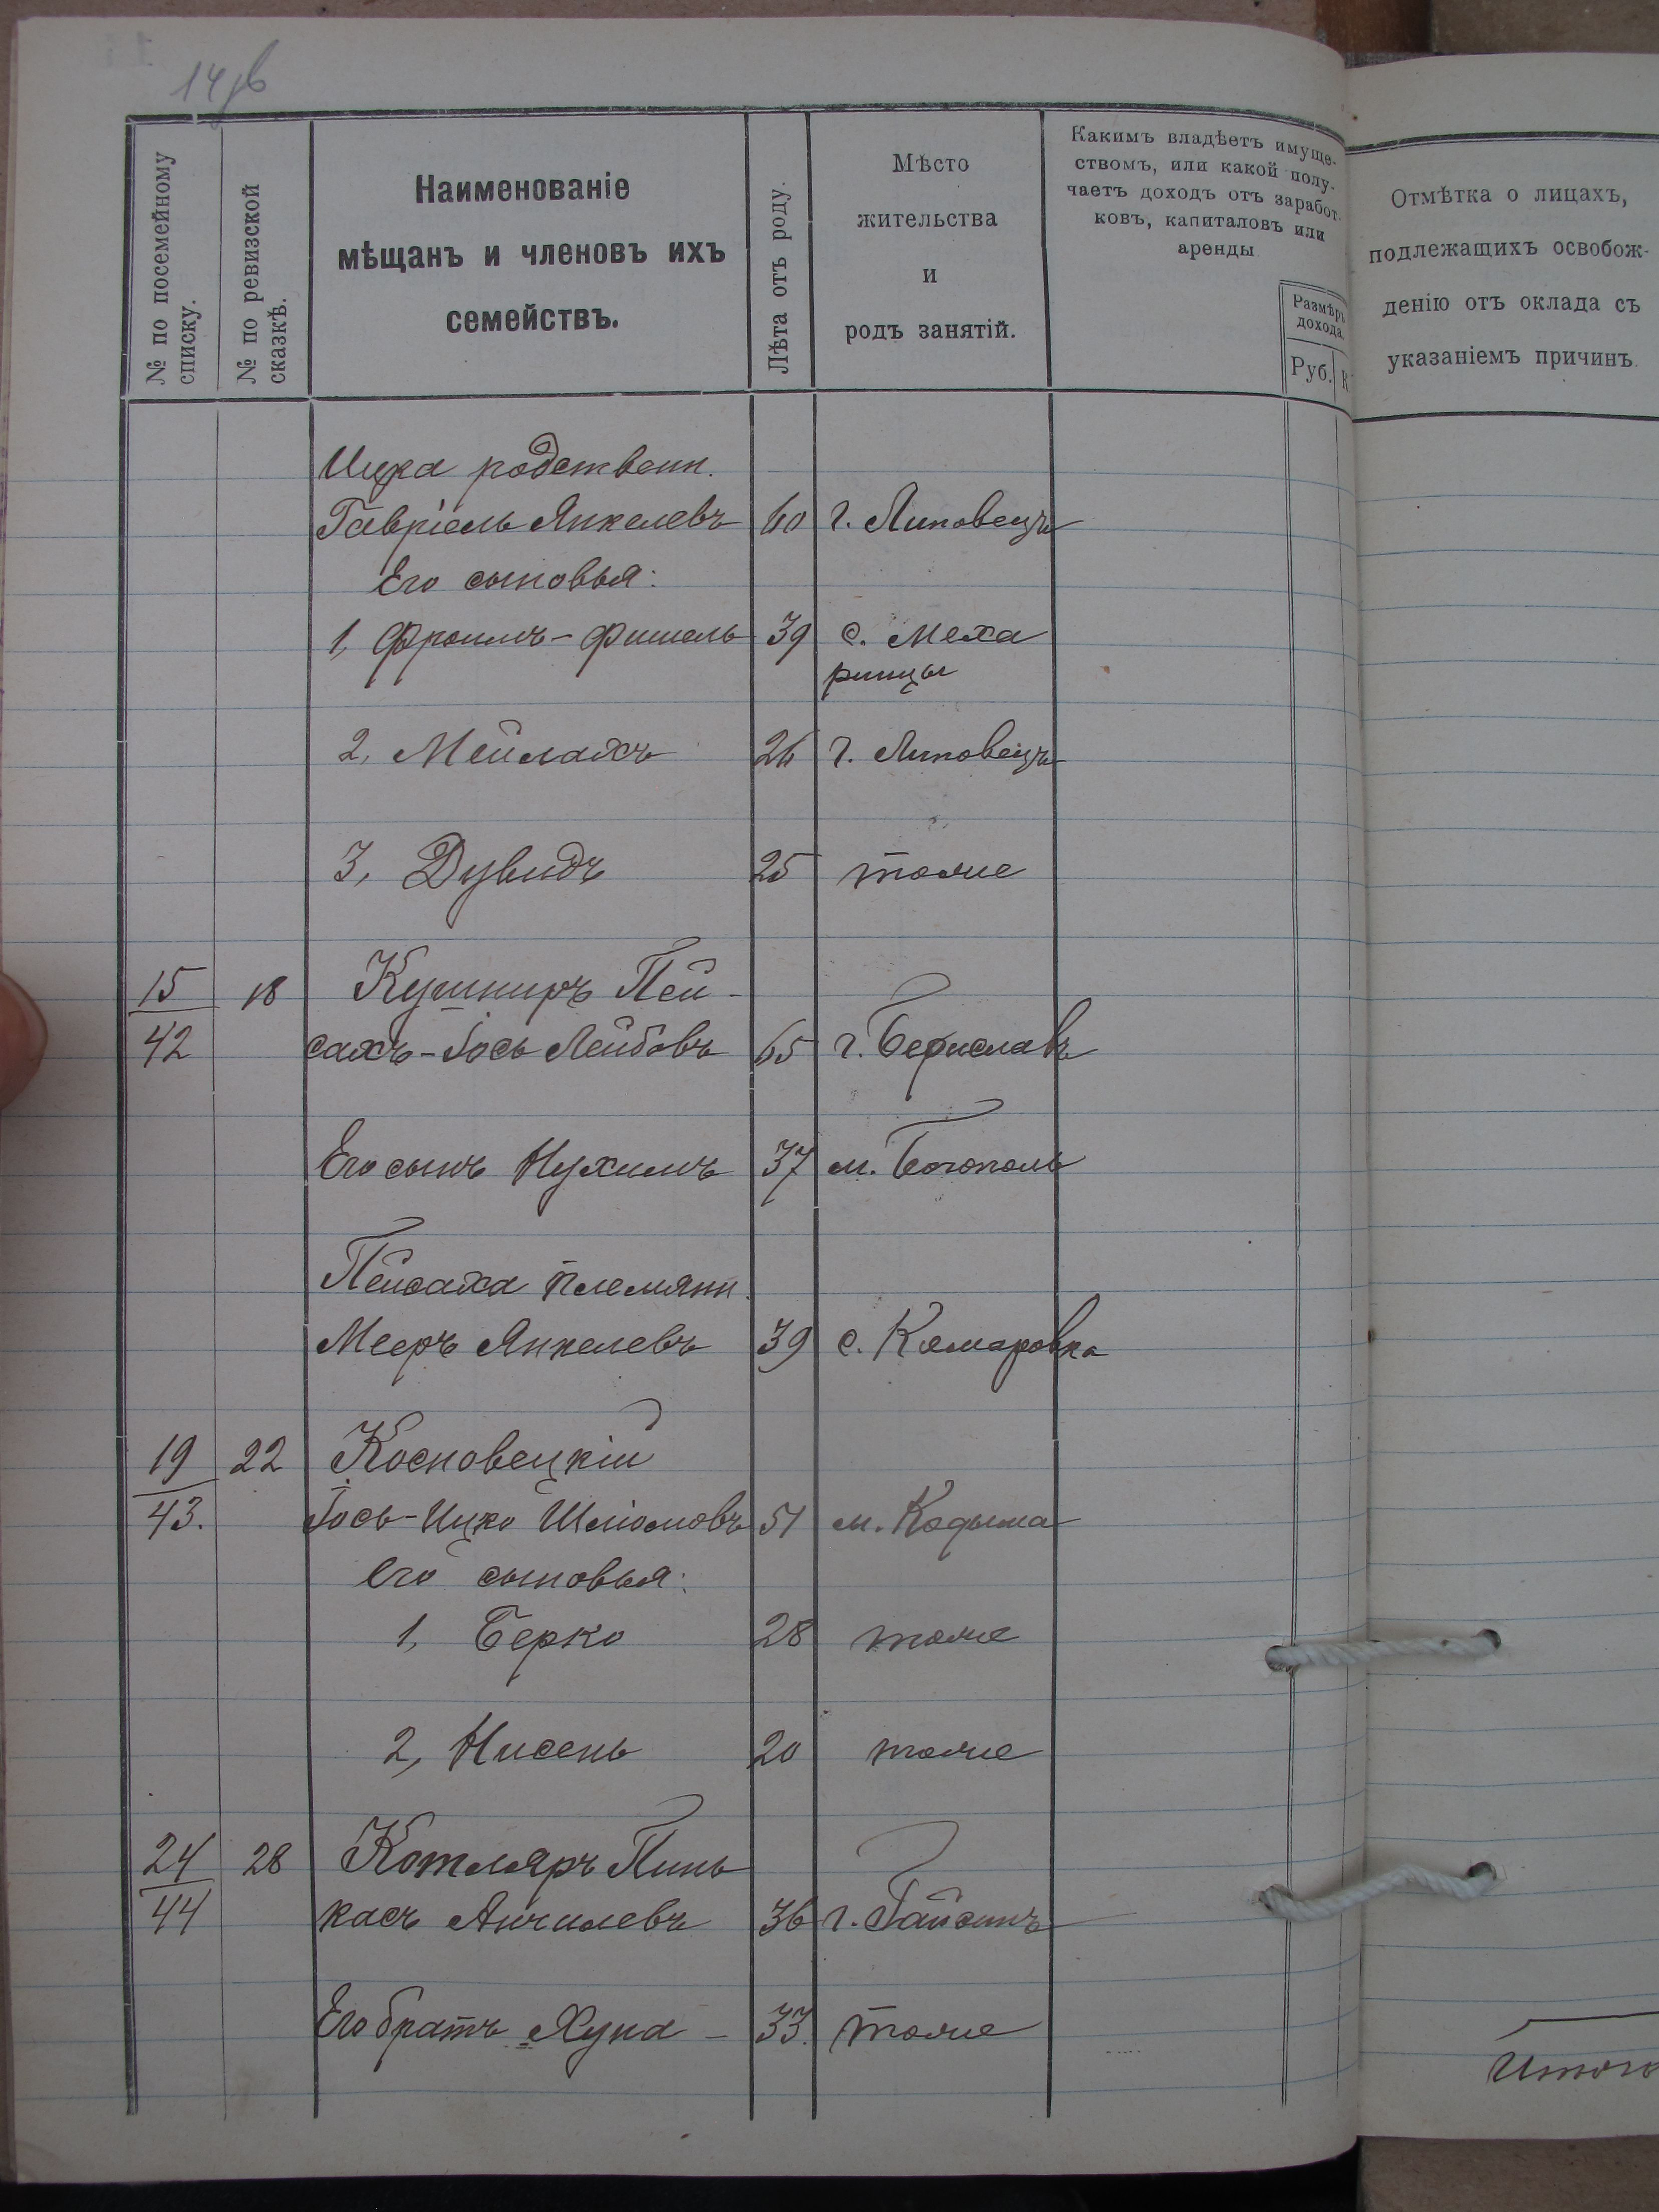 14 об
№ по посемейному
списку.
№ по ревизской
сказкѣ.
Наименованіе
мѣщанъ и членовъ ихъ
семействъ.
Лѣта отъ роду.
Мѣсто
жительства
и
родъ занятій.
Какимъ владѣетъ имуще-
ствомъ, или какой полу-
чаетъ доходъ отъ заработ-
ковъ, капиталовъ или
аренды
Размѣръ
дохода.
Руб. К
Отмѣтка о лицахъ,
подлежащихъ освобож-
денію отъ оклада съ
указаніемъ причинъ.
Ицка родственн.
Гавріель Янкелевъ 60 г. Липовецъ
Его сыновья:
1, Фроимъ-Фишель 39 с. Меха
ринцы
2, Мейлахъ 26 г. Липовецъ
3, Дувидъ 25 тоже
15 18 Кушниръ Пей-
42 сахъ-Іось Лейбовъ 65 г. Бериславъ
Его сынъ Нухимъ 37 м. Богополь
Пейсаха племянн.
Мееръ Янкелевъ 39 с. Комаровка
19 22 Косновецкій
43. Іось-Ицко Шліомовъ 51 м. Кодыма
Его сыновья:
1, Берко 28 тоже
2, Нисень 20 тоже
24 28 Котляръ Пинь
44 касъ Анчилевъ 36 г. Гайсинъ
Его братъ Хуна - 33. тоже
Итого